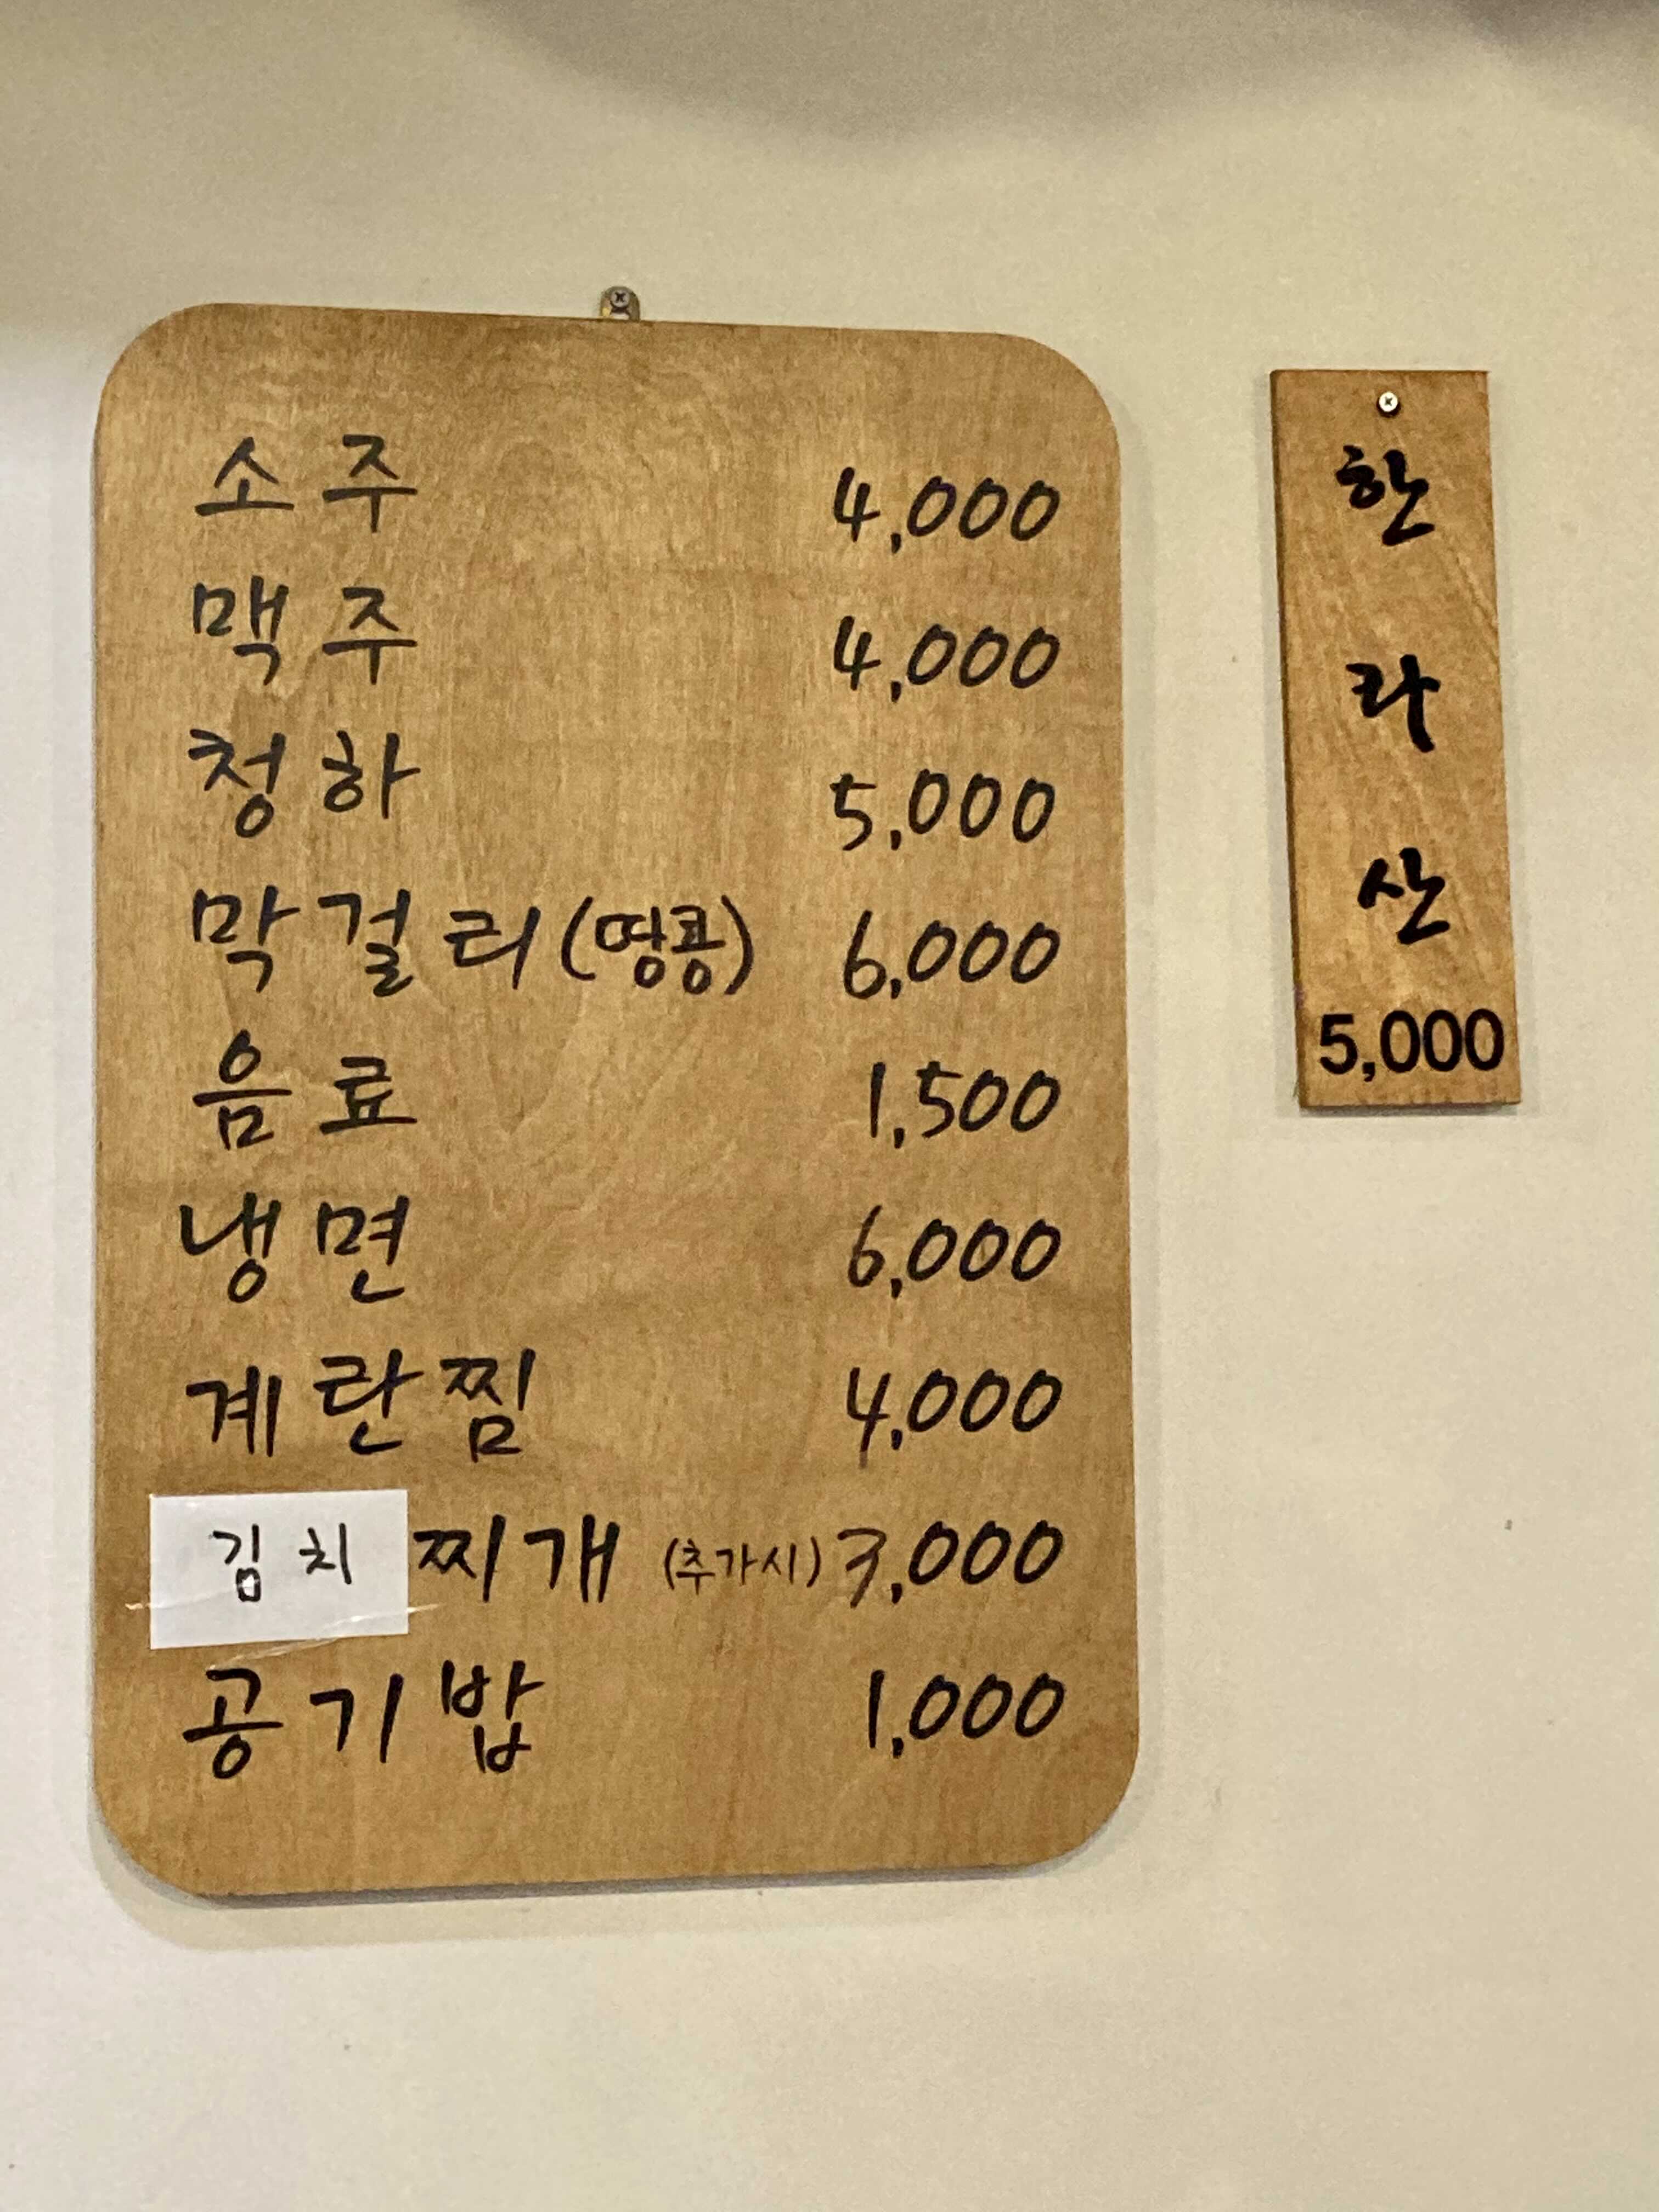 소주 4,000
맥주 4,000
청하 5,000
막걸리(땅콩) 6,000
음료 1,500
냉면 6,000
계란찜 4,000
김치찌개 (추가시) 3,000
공기밥 1,000
한
라
산
5,000